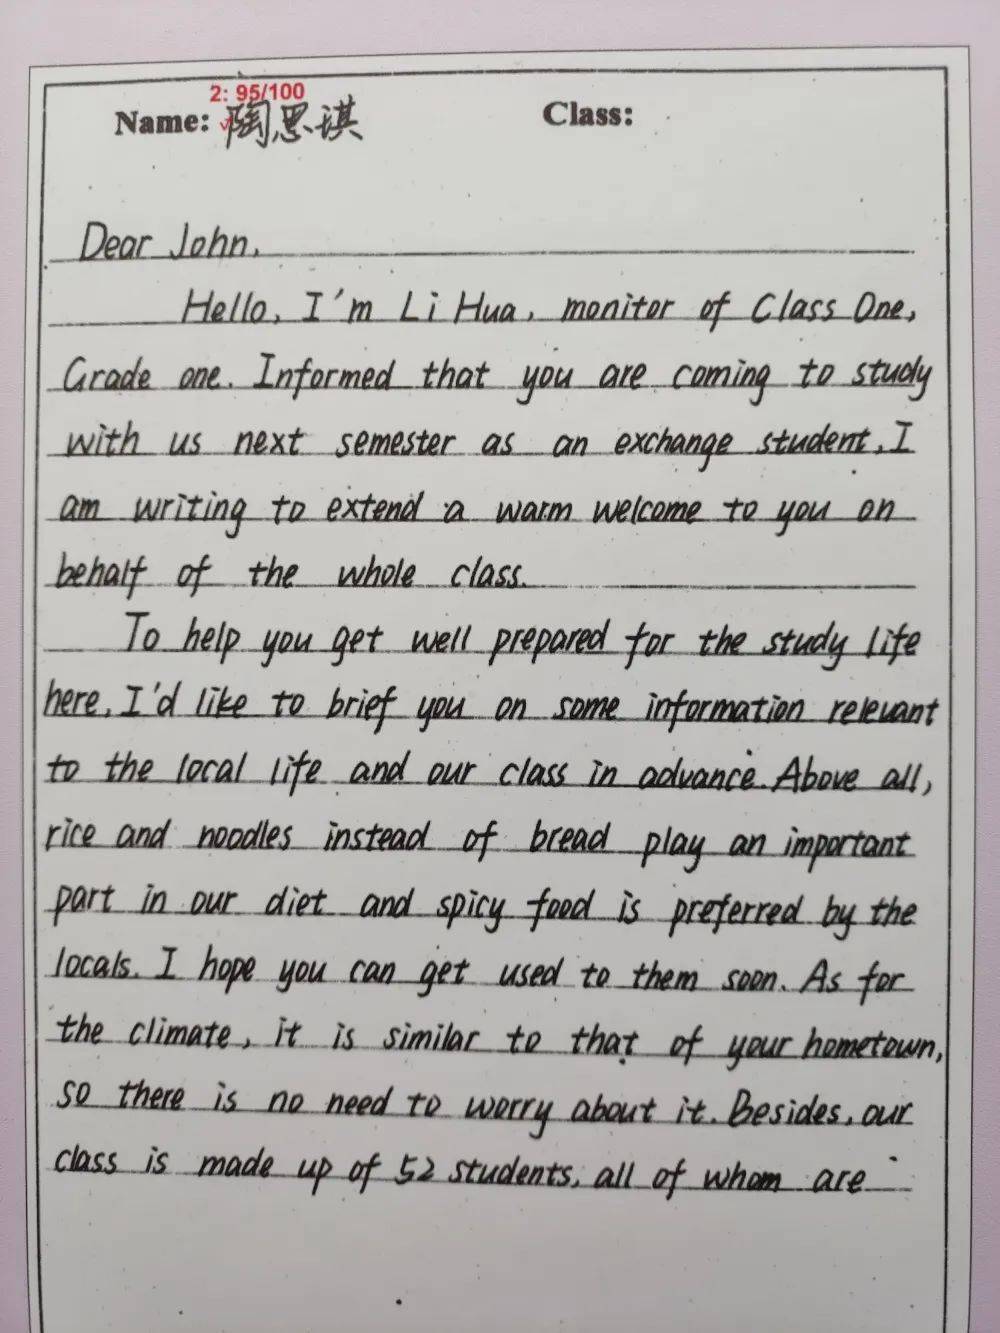 2: 95/100
Name: 陶思琪 Class:
Dear John,
Hello, I'm Li Hua, monitor of Class One,
Grade one. Informed that you are coming to study
with us next semester as an exchange student, I
am writing to extend a warm welcome to you on
behalf of the whole class.
To help you get well prepared for the study life
here, I'd like to brief you on some information relevant
to the local life and our class in advance. Above all,
rice and noodles instead of bread play an important
part in our diet and spicy food is preferred by the
locals. I hope you can get used to them soon. As for
the climate, it is similar to that of your hometown,
so there is no need to worry about it. Besides, our
class is made up of 52 students, all of whom are